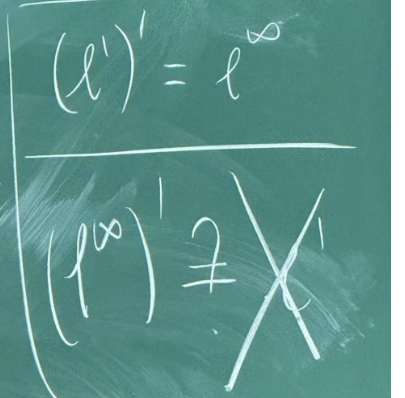 (ℓ¹)' = ℓ^∞
(ℓ^∞)' ≠ ℓ¹